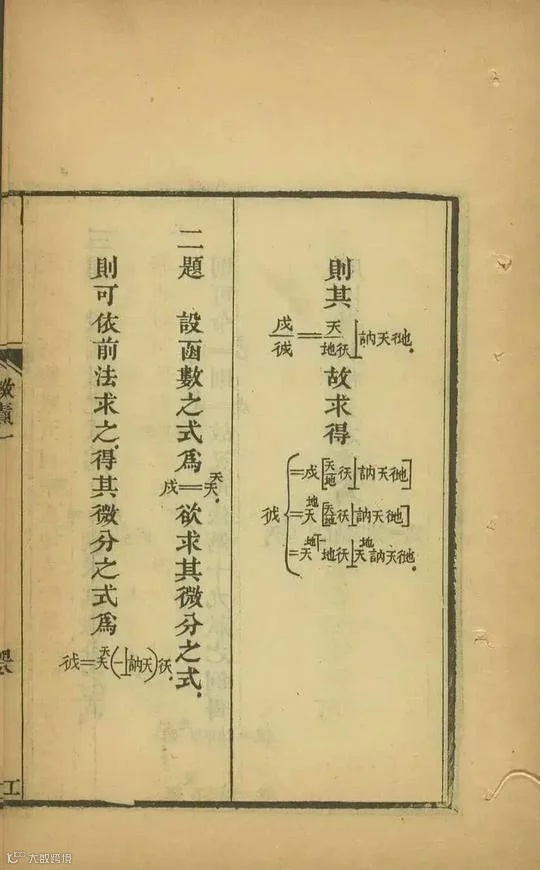 則其 戌/彳戌=天/地彳天⊥訥天彳地. 故求得
彳戌
=戌[天/地彳天⊥訥天彳地]
=天地[天/地彳天⊥訥天彳地]
=天地丅一地彳天⊥天地訥天彳地.
二題 設函數之式爲戌=天天,欲求其微分之式.
則可依前法求之.得其微分之式爲彳戌=天天(一⊥訥天)彳天.
大数跨境